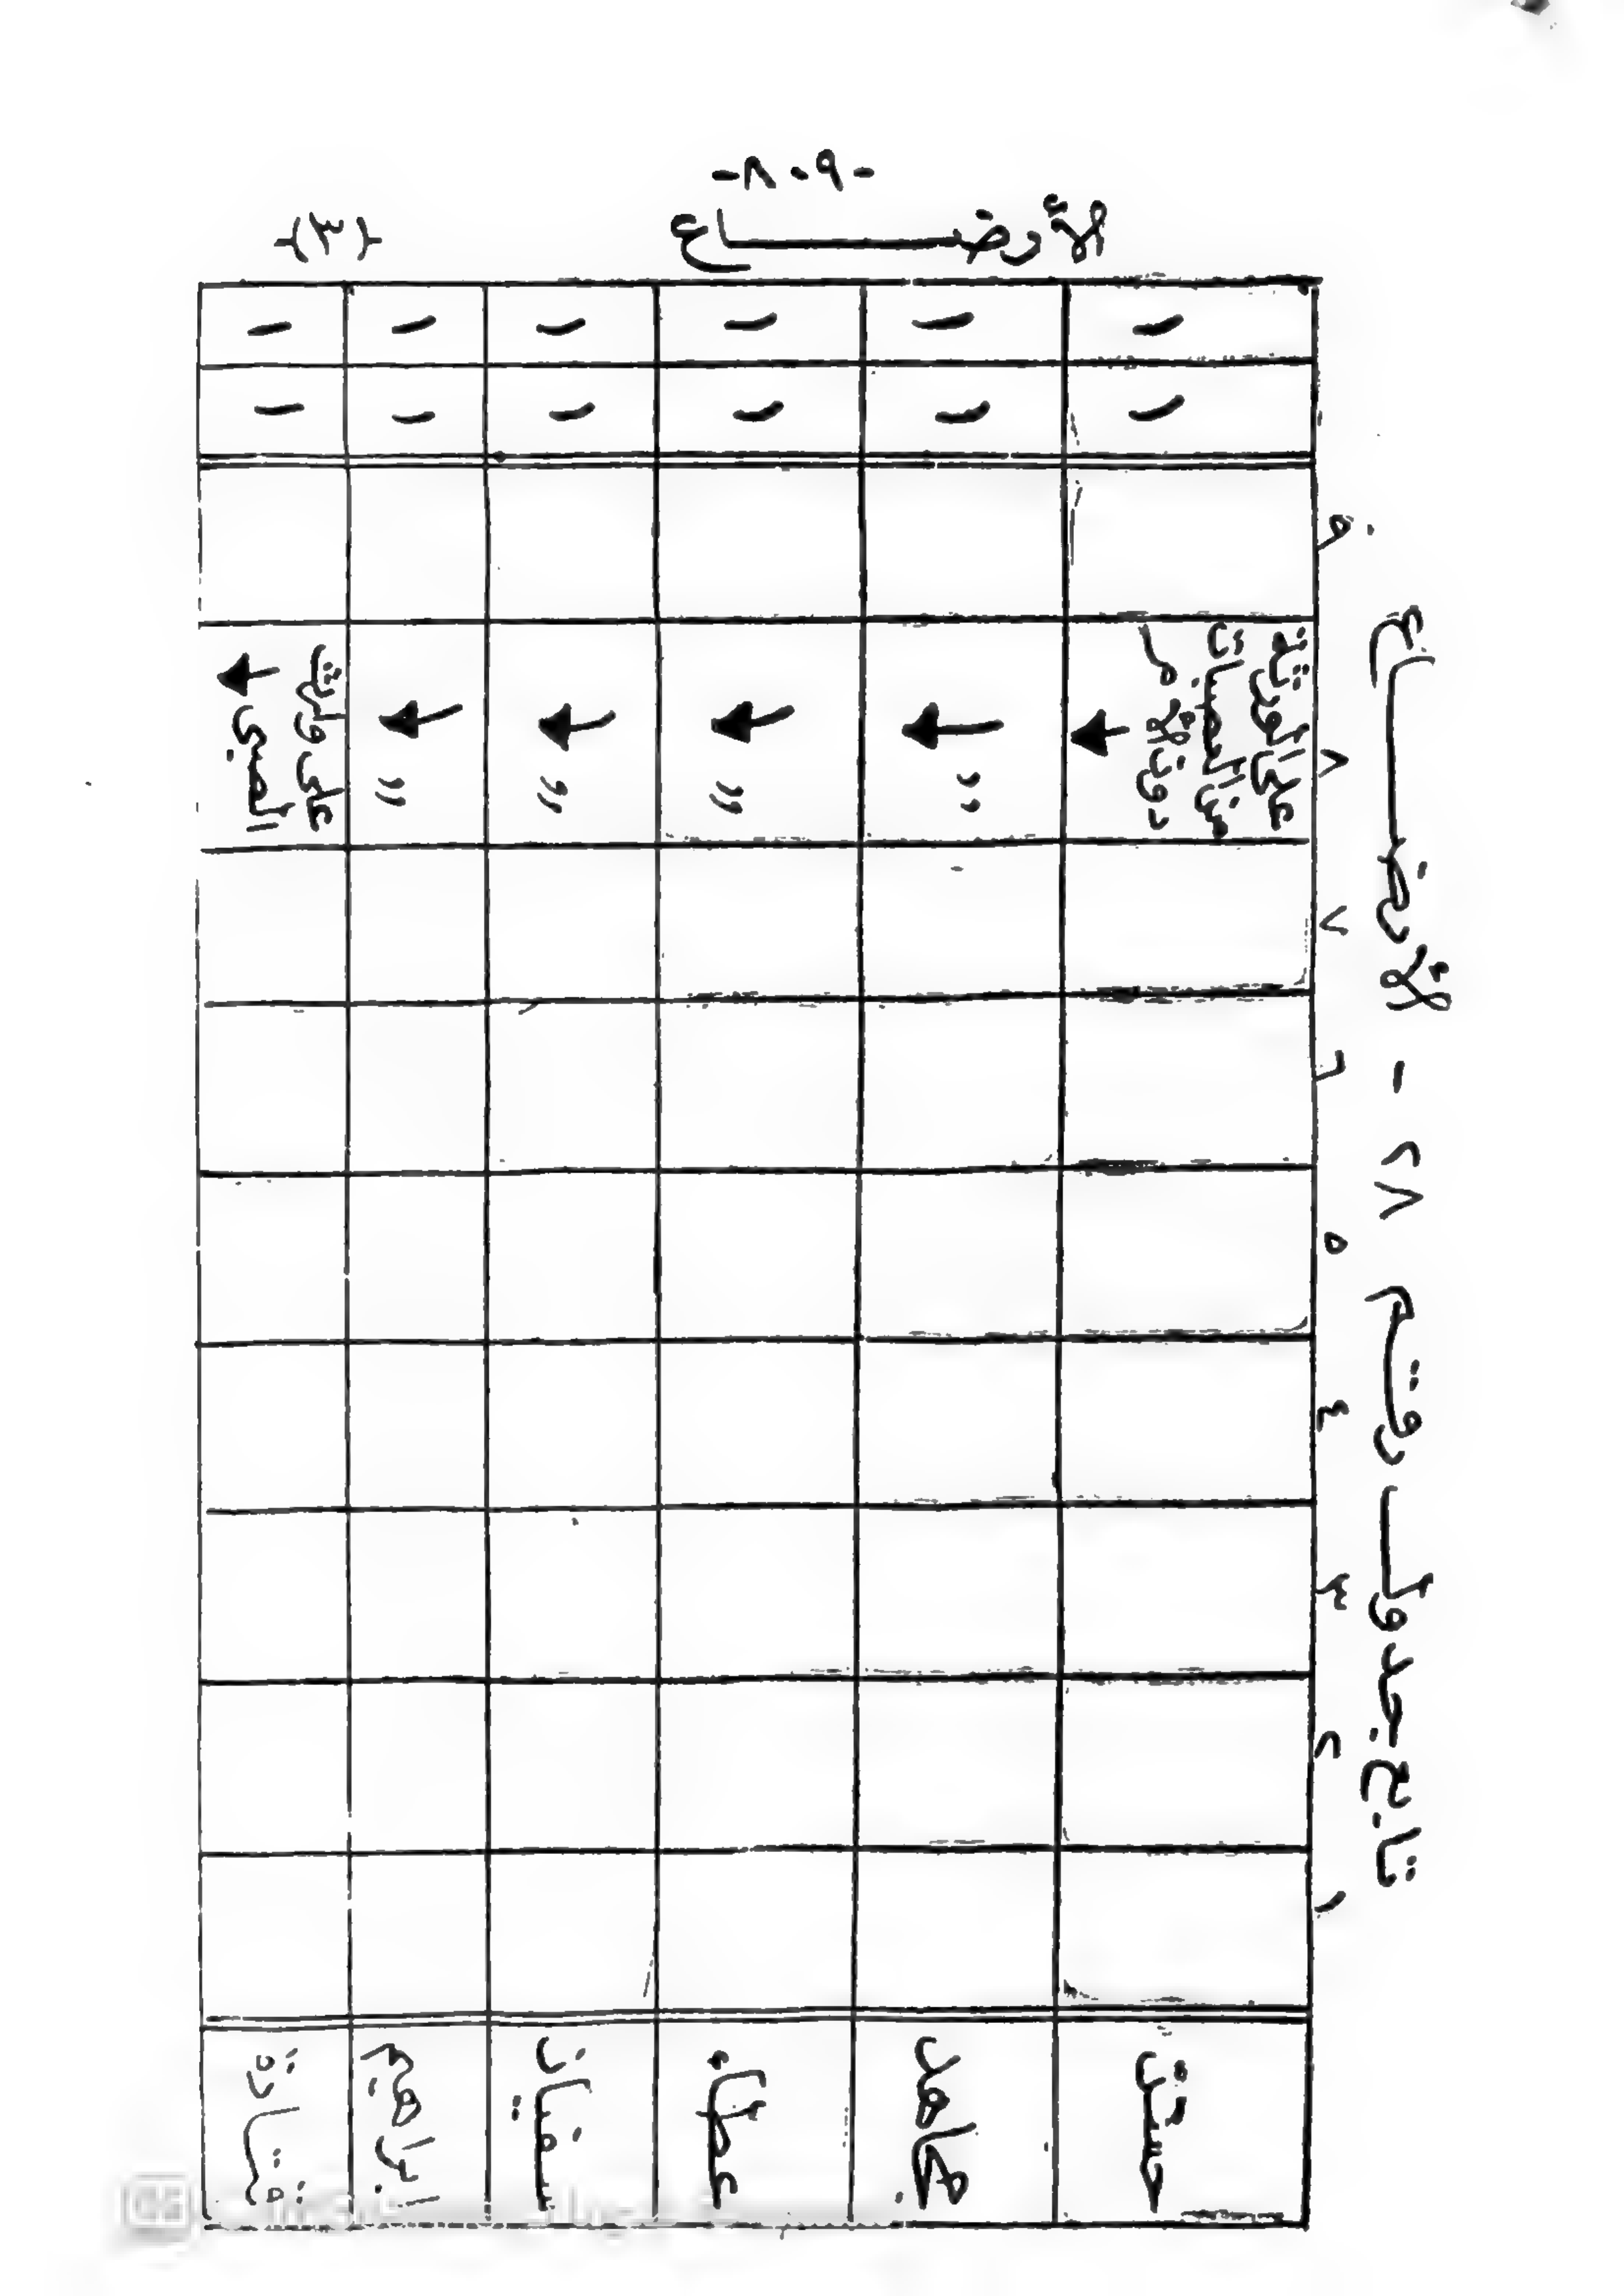 -٨٠٩-
الأوضـــــاع
{٣}
تابع جدول رقم ٢٨ - الأوضـــاع
١ ٢ ٣ ٤ ٥ ٦ ٧ ٨ ٩
حسن
على الورثة
من العصبات
دون الأم
مجاهد
"
عطاء
"
سفيان
"
ابراهيم
"
قتادة
على وارث
الصبي